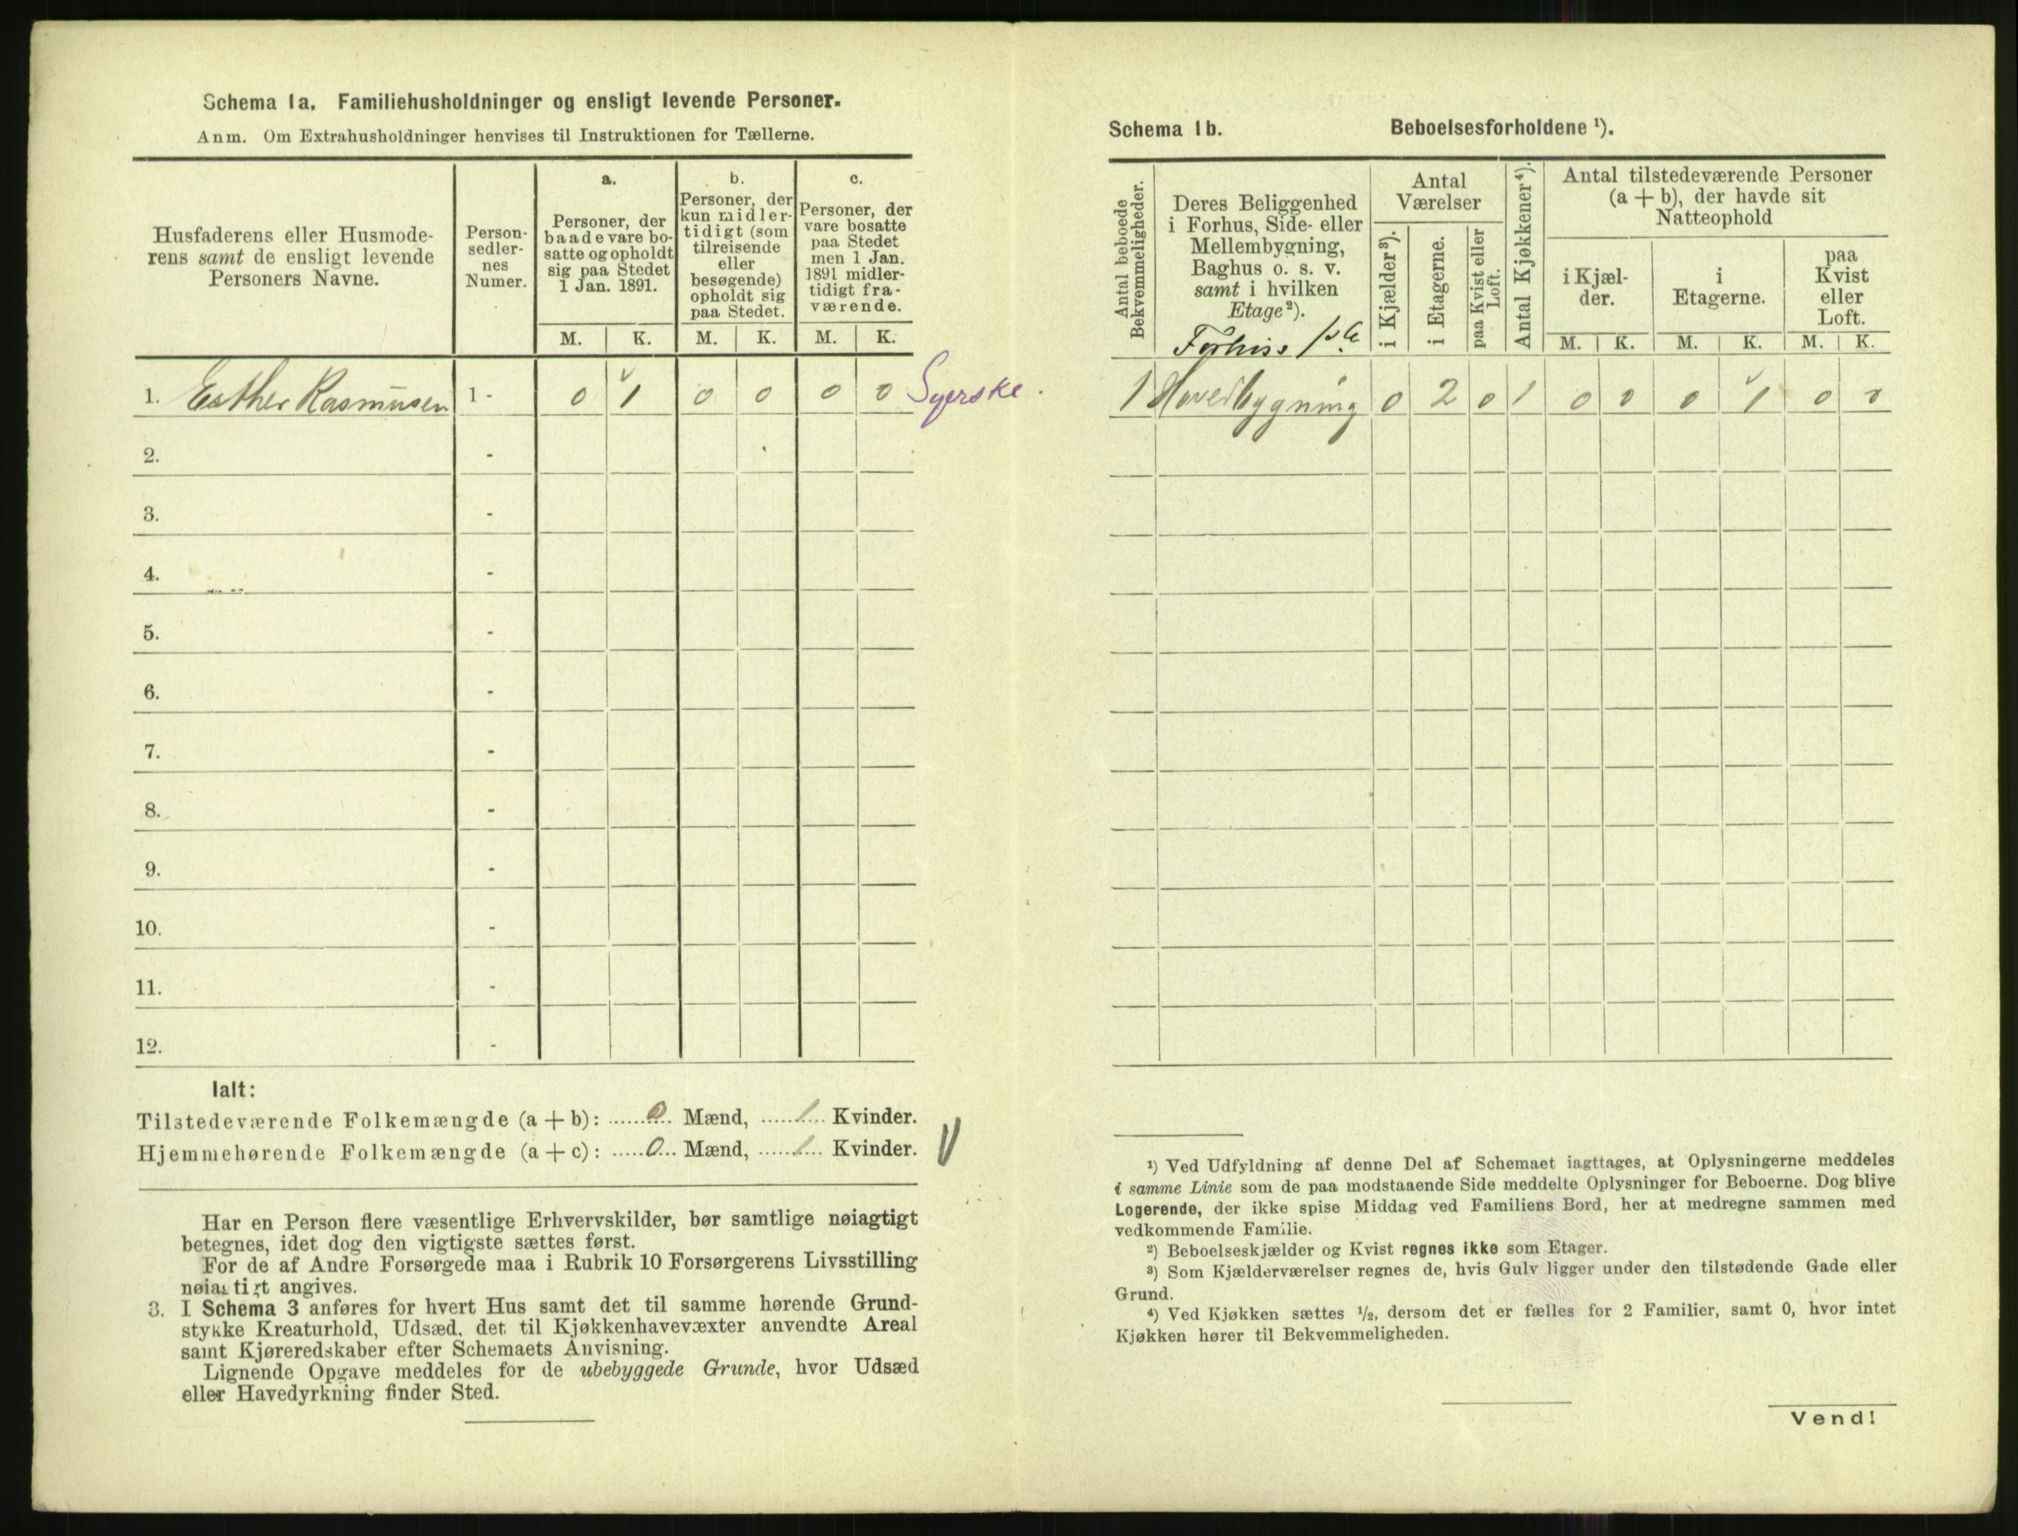 Schema 1a. Familiehusholdninger og ensligt levende Personer.
Anm. Om Extrahusholdninger henvises til Instruktionen for Tællerne.
Husfaderens eller Husmode-
rens samt de ensligt levende
Personers Navne.
Person-
sedler-
nes
Numer.
a.
Personer, der
baade vare bo-
satte og opholdt
sig paa Stedet
1 Jan. 1891.
b.
Personer, der
kun midler-
tidigt (som
tilreisende
eller
besøgende)
opholdt sig
paa Stedet.
c.
Personer, der
vare bosatte
paa Stedet
men 1 Jan.
1891 midler-
tidigt fra-
værende.
M. K. M. K. M. K.
1. Esther Rasmusen 1 - 0 1 0 0 0 0 Syerske.
2. -
3. -
4. -
5. -
6. -
7. -
8. -
9. -
10. -
11. -
12. -
Ialt:
Tilstedeværende Folkemængde (a + b): 0 Mænd, 1 Kvinder.
Hjemmehørende Folkemængde (a + c): 0 Mænd, 1 Kvinder.
Har en Person flere væsentlige Erhvervskilder, bør samtlige nøiagtigt
betegnes, idet dog den vigtigste sættes først.
For de af Andre Forsørgede maa i Rubrik 10 Forsørgerens Livsstilling
nøiagtigt angives.
3. I Schema 3 anføres for hvert Hus samt det til samme hørende Grund-
stykke Kreaturhold, Udsæd, det til Kjøkkenhavevæxter anvendte Areal
samt Kjøreredskaber efter Schemaets Anvisning.
Lignende Opgave meddeles for de ubebyggede Grunde, hvor Udsæd
eller Havedyrkning finder Sted.
Schema 1b. Beboelsesforholdene ¹).
Antal beboede
Bekvemmeligheder.
Deres Beliggenhed
i Forhus, Side- eller
Mellembygning,
Baghus o. s. v.
samt i hvilken
Etage ²).
Forhus 1ste
Antal
Værelser
i Kjælder ³).
i Etagerne.
paa Kvist eller
Loft.
Antal Kjøkkener ⁴).
Antal tilstedeværende Personer
(a + b), der havde sit
Natteophold
i Kjæl-
der.
i
Etagerne.
paa
Kvist
eller
Loft.
M. K. M. K. M. K.
1 Hovedbygning 0 2 0 1 0 0 0 1 0 0
¹) Ved Udfyldning af denne Del af Schemaet iagttages, at Oplysningerne meddeles
i samme Linie som de paa modstaaende Side meddelte Oplysninger for Beboerne. Dog blive
Logerende, der ikke spise Middag ved Familiens Bord, her at medregne sammen med
vedkommende Familie.
²) Beboelseskjælder og Kvist regnes ikke som Etager.
³) Som Kjælderværelser regnes de, hvis Gulv ligger under den tilstødende Gade eller
Grund.
⁴) Ved Kjøkken sættes ½, dersom det er fælles for 2 Familier, samt 0, hvor intet
Kjøkken hører til Bekvemmeligheden.
Vend!